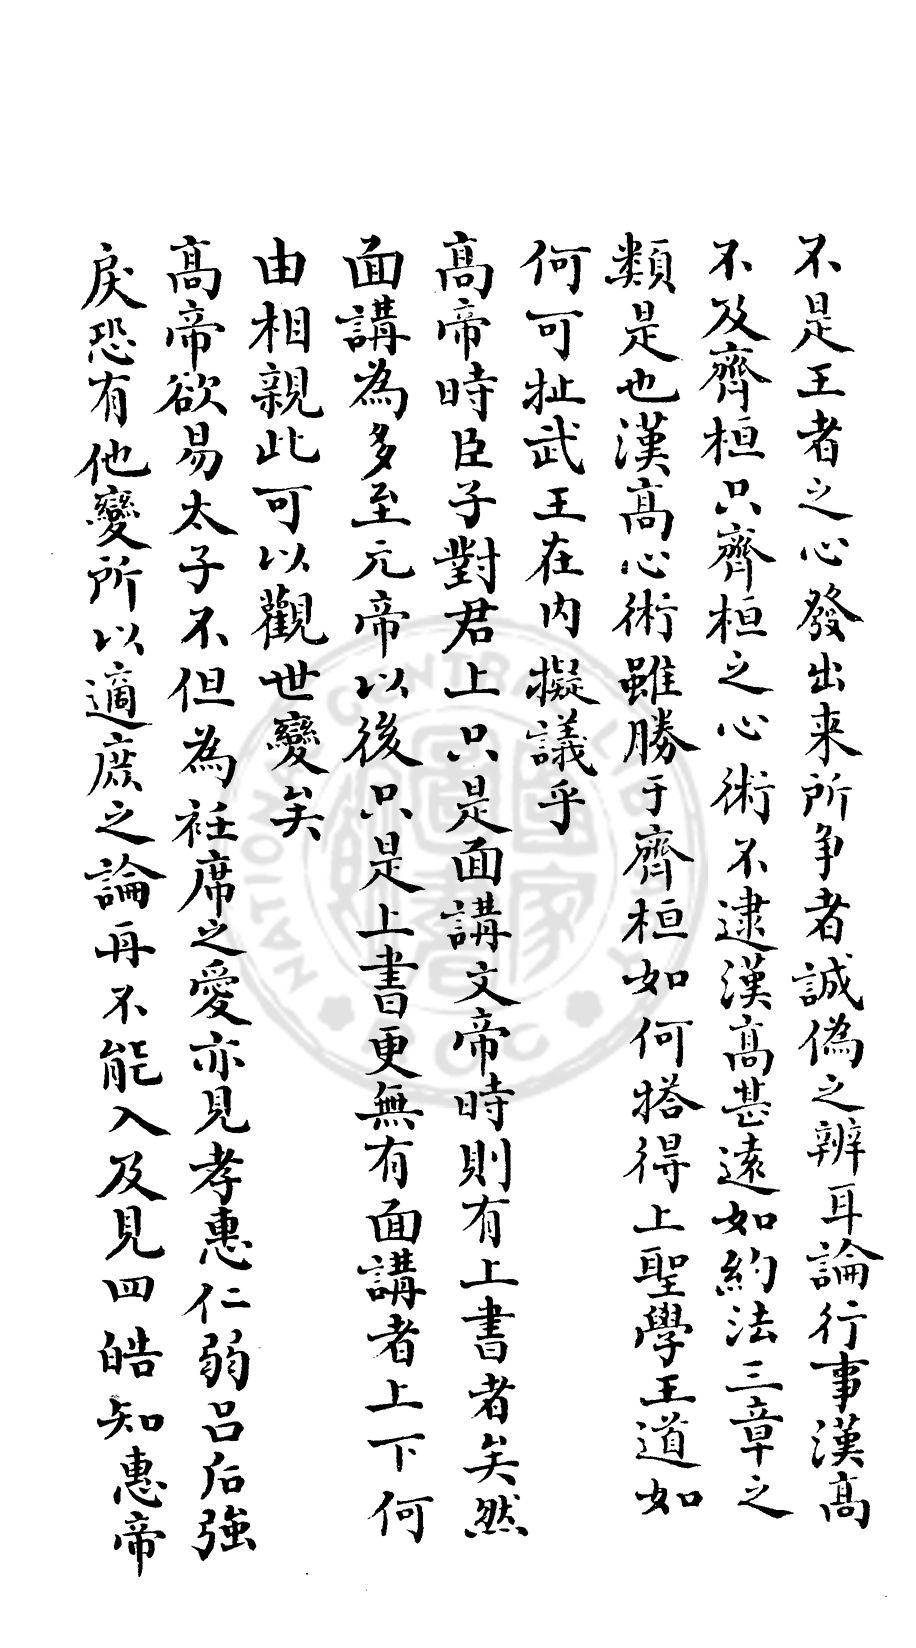 不是王者之心發出来所争者誠偽之辨耳論行事漢高
不及齊桓只齊桓之心術不逮漢高甚遠如約法三章之
類是也漢高心術雖勝于齊桓如何搭得上聖學王道如
何可扯武王在内擬議乎
高帝時臣子對君上只是面講文帝時則有上書者矣然
面講為多至元帝以後只是上書更無有面講者上下何
由相親此可以觀世變矣
高帝欲易太子不但為衽席之愛亦見孝惠仁弱吕后強
戾恐有他變所以適庶之論再不能入及見四皓知惠帝
NATIONAL CENTRAL LIBRARY
ROC
國家圖書館